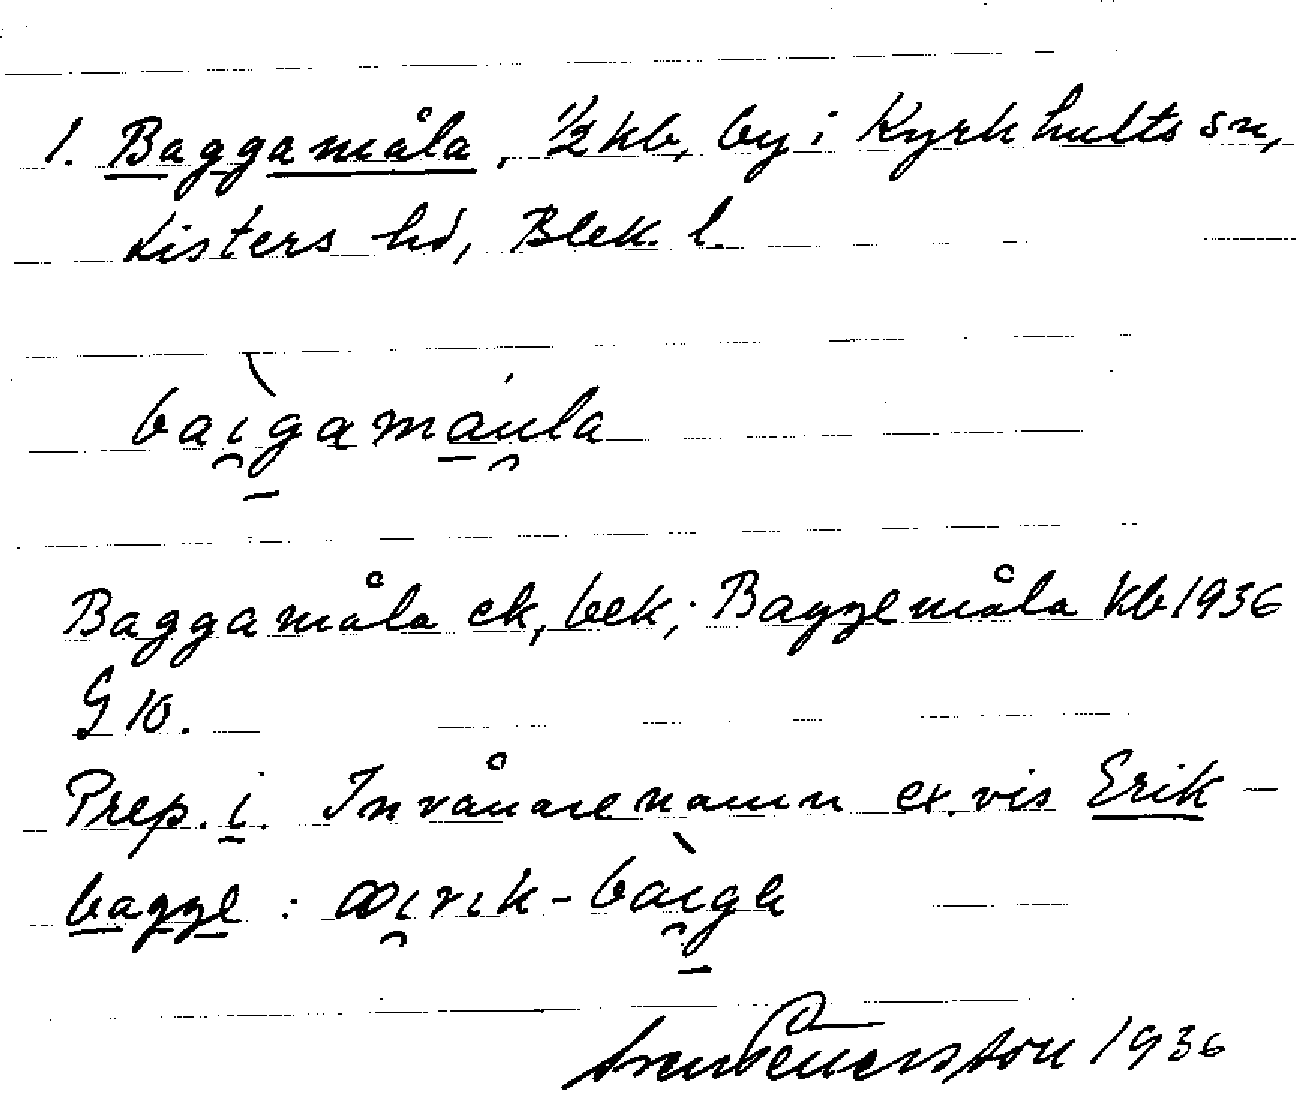 1. Baggamåla, 1/2 kb, by i Kyrkhults sn,
Listers hd, Blek. l.
baigamaula
Baggamåla ek, bek; Baggemåla kb 1936
G 10.
Prep. i. Invånarenamn ex.vis Erik-
bagge: æirik-baige
Sven Benson 1936